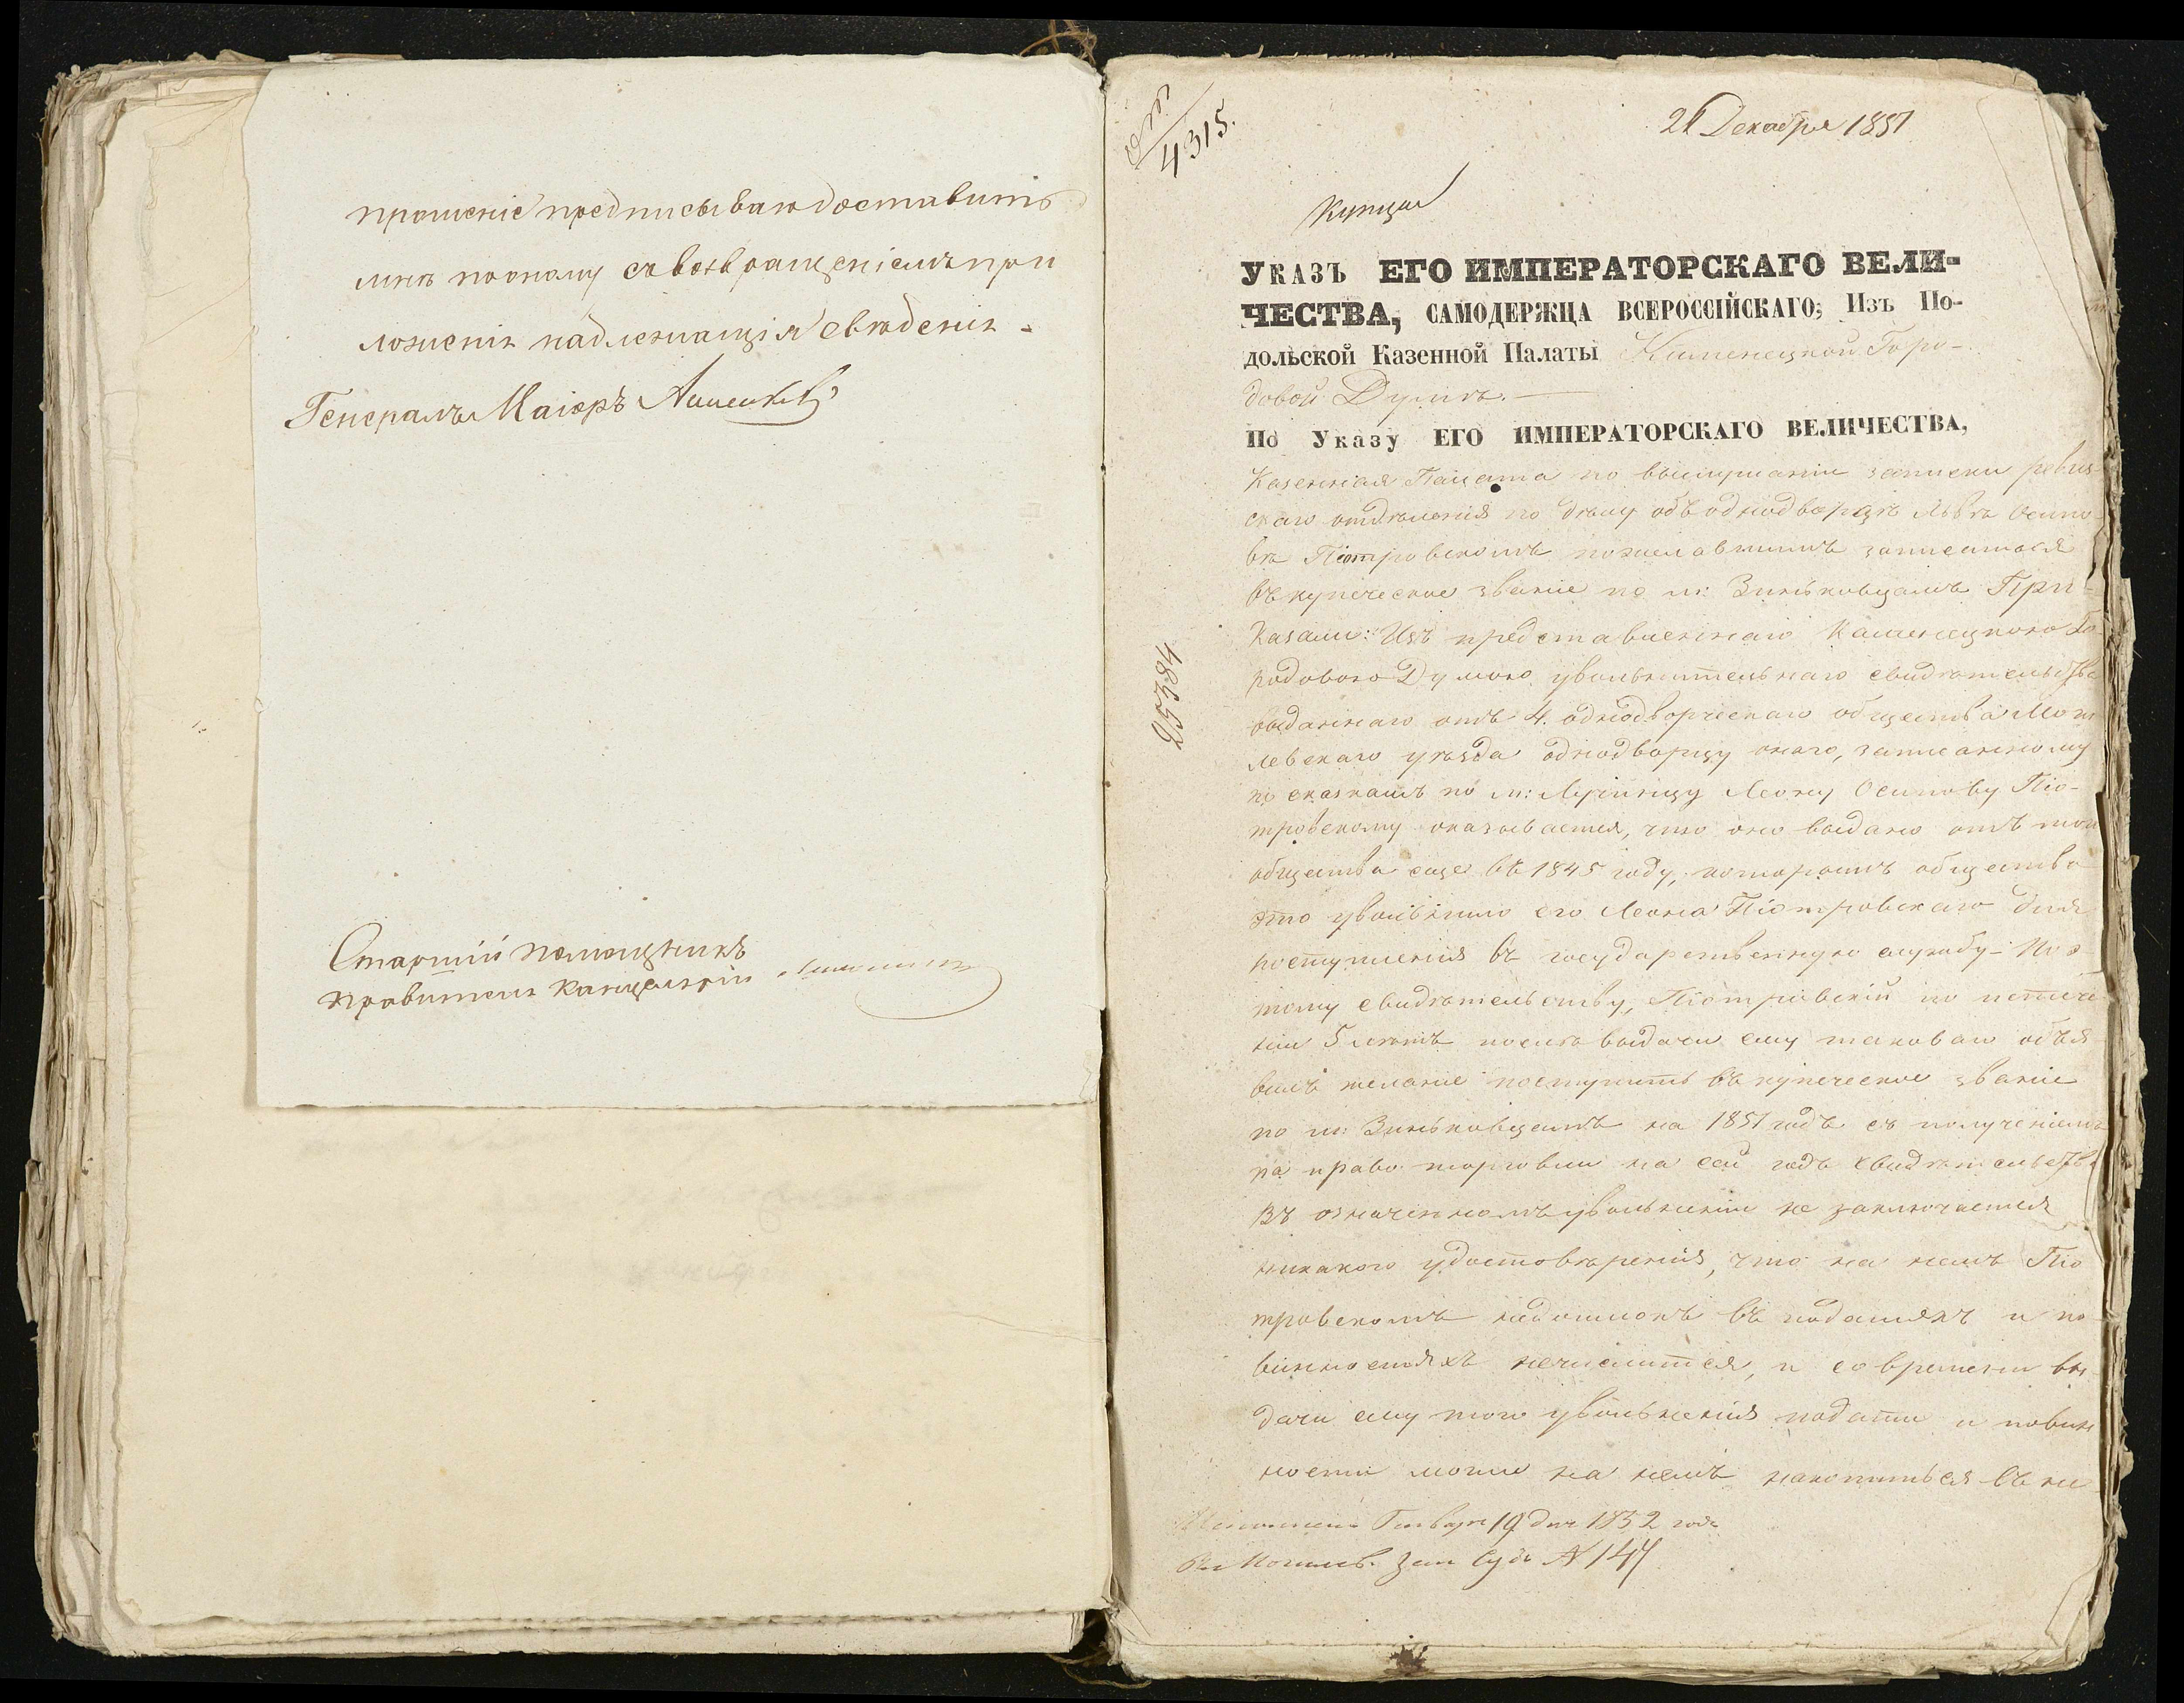 прошеніе предписываю доставить
мнѣ по оному съ возвращеніемъ при
ложенія надлежащія свѣденія.
Генералъ Маіоръ
Старшій помощникъ
правителя канцеляріи
4315.
21 Декабря 1851
Купцы
25384
Указъ ЕГО ИМПЕРАТОРСКАГО ВЕЛИ-
ЧЕСТВА, САМОДЕРЖЦА ВСЕРОССІЙСКАГО; Изъ По-
дольской Казенной Палаты Каменецкой Горо-
довой Думѣ.
По Указу ЕГО ИМПЕРАТОРСКАГО ВЕЛИЧЕСТВА,
Казенная Палата по выслушаніи записки ревиз-
скаго отдѣленія по дѣлу объ однодворцѣ Львѣ Осипо-
вѣ Піотровскомъ пожелавшимъ записаться
въ купеческое званіе по м: Зиньковцамъ При-
казали: Изъ представленнаго Каменецкою Го-
родовою Думою увольнительнаго свидѣтельства
выданнаго отъ 4. однодворческаго общества Моги
левскаго уѣзда однодворцу оного, записанному
по сказкамъ по м: Лучинцу Леону Осипову Піо-
тровскому оказывается, что оно выдано отъ того
общества еще въ 1845 году, которымъ общество
это увольнило его Леона Піотровскаго для
поступленія въ государственную службу – По э-
тому свидѣтельству, Піотровскій по истече-
ніи 5 лѣтъ послѣ выдачи ему таковаго объя-
вилъ желаніе поступить въ купеческое званіе
по м: Зиньковцамъ на 1851 годъ съ полученіемъ
на право торговли на сей годъ свидѣтельства
Въ означенномъ увольненіи не заключается
никакого удостовѣренія, что на немъ Піо
тровскомъ недоимокъ въ податяхъ и по-
винностяхъ нечислится, и со времени вы-
дачи ему того увольненія подати и повин
ности могли на немъ накопиться въ не
Исполнено Генваря 19 дня 1852 года
въ Могилев. Зем Судъ N 147